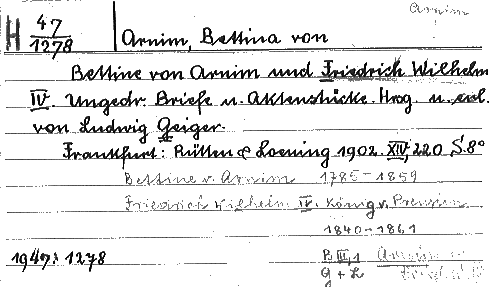 Arnim
H 47/1278 Arnim, Bettina von
Bettine von Arnim und Friedrich Wilhelm
IV. Ungedr. Briefe u. Aktenstücke. Hrsg. u. erl.
von Ludwig Geiger.
Frankfurt: Rütten & Loening 1902. XIV, 220 S. 8°
Bettine v. Arnim 1785-1859
Friedrich Wilhelm IV. König v. Preußen
1840-1861
1947: 1278 B III, 1 Arnim
G + L